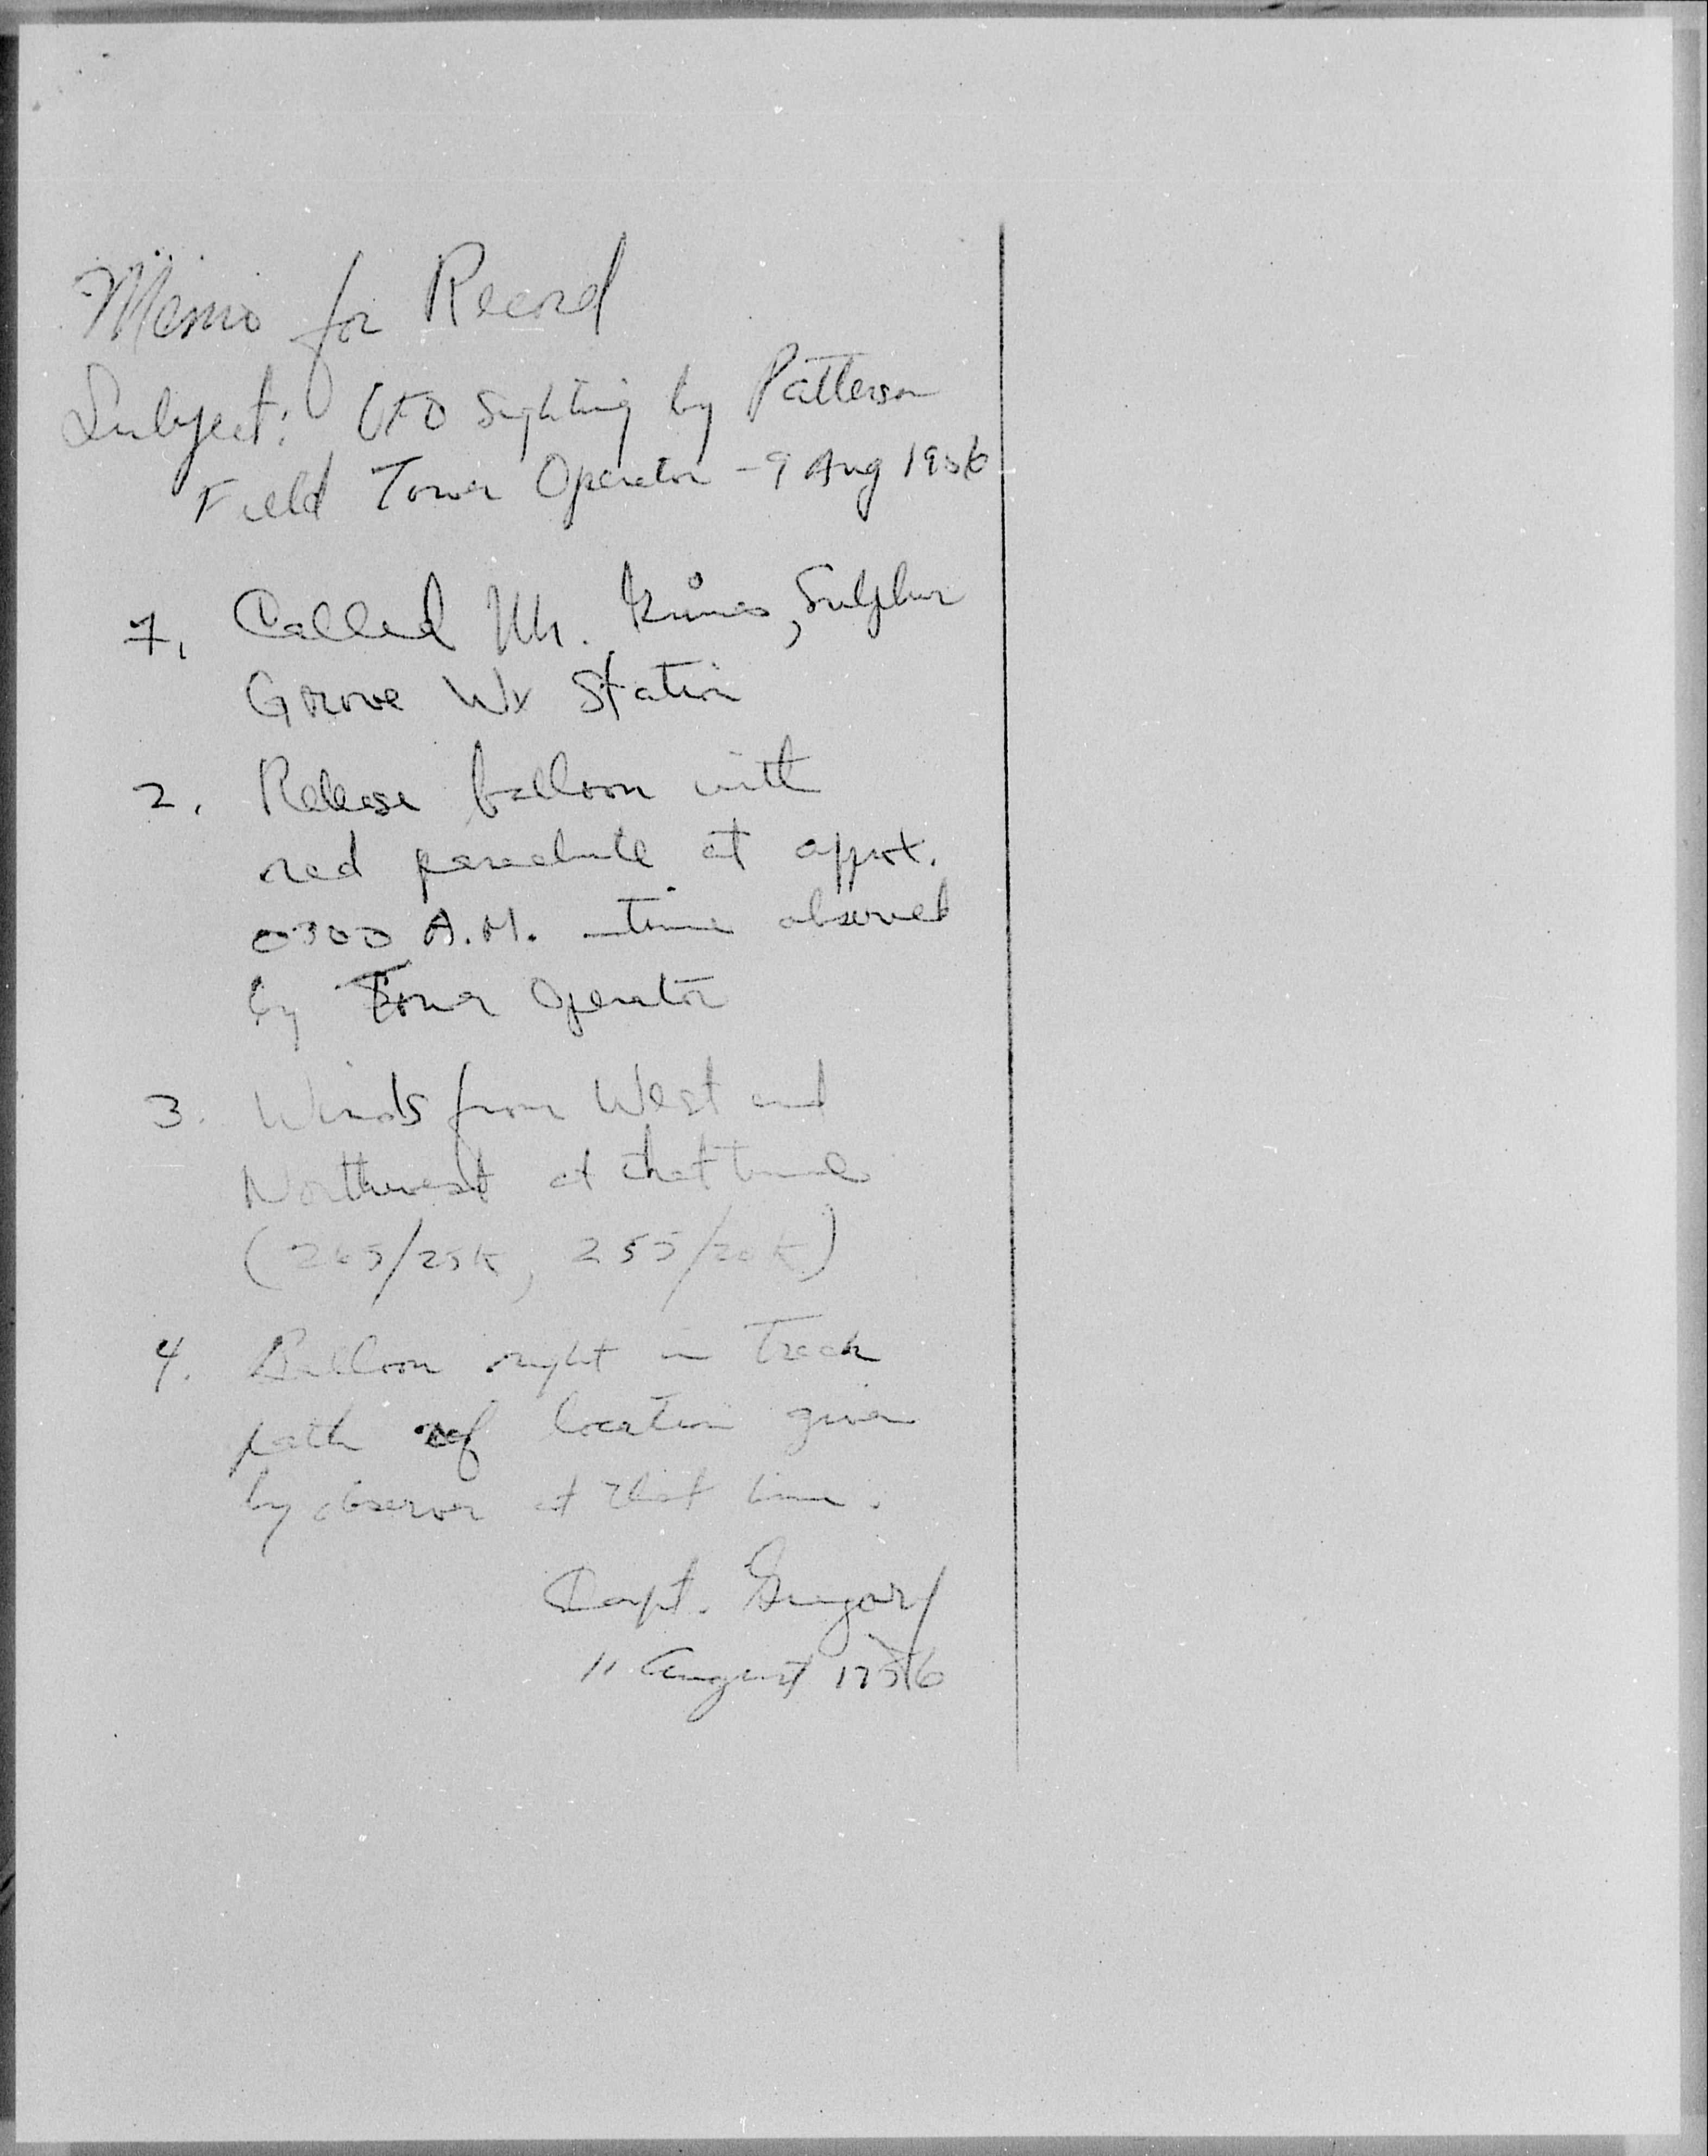 Memo for Record
Subject: UFO Sighting by Patterson
Field Tower Operator - 9 Aug 1956
1. Called Mr. , Sulphur
Grove Wx Station
2. Release balloon with
red parachute at approx.
0300 A.M. - time observed
by Tower Operator
3. Winds from West and
Northwest at that time
(265/25K, 255/20K)
4. Balloon right in Track
path of location given
by observer at that time.
Capt. Gregory
11 August 1956